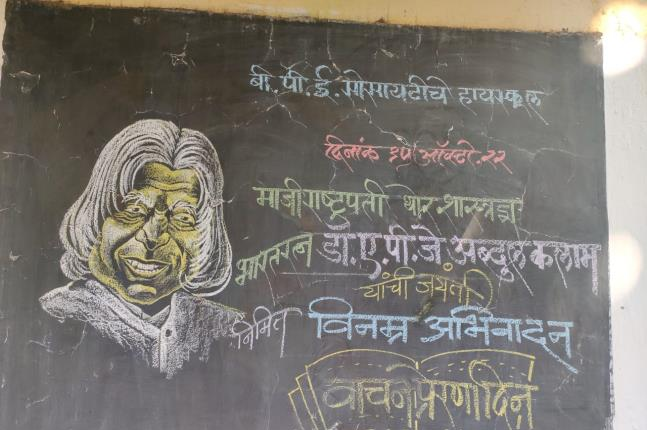 बी. पी. ई. सोसायटीचे हायस्कूल
दिनांक १५ ऑक्टो. २२
माजी राष्ट्रपती थोर शास्त्रज्ञ
भारतरत्न डॉ. ए. पी. जे अब्दुल कलाम
यांची जयंती
निमित्त विनम्र अभिवादन
वाचन प्रेरणा दिन